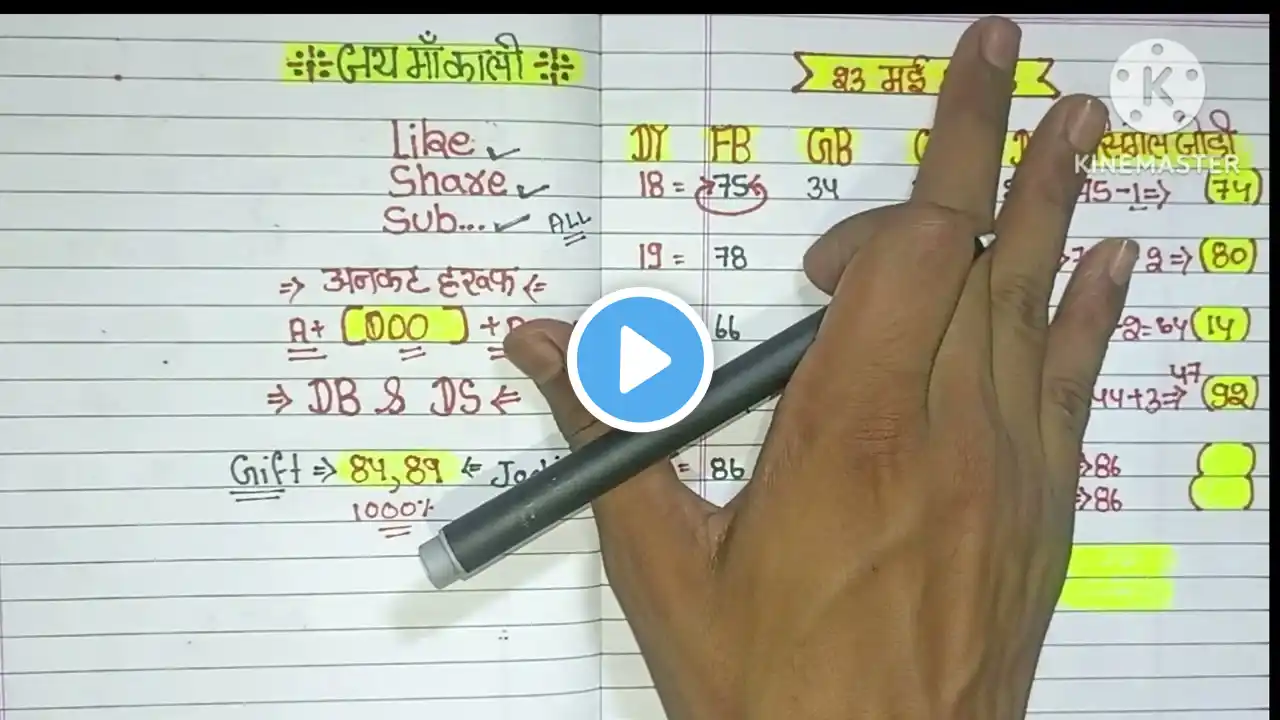 जय माँ काली
Like
Share
Sub... ALL
⇒ अनकट हरूफ ⇐
A+ (000) +
⇒ DB & DS ⇐
Gift ⇒ 84,89 ⇐
1000%
23 मई
DY FB GB जोड़ी
18 = 75 34 75-1=> 74
19 = 78 2 => 80
66 -2=64 14
47
44+3=> 92
= 86 =>86
=>86
KINEMASTER